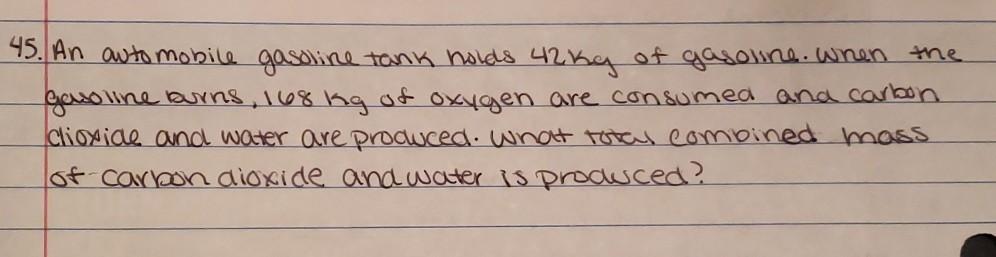 45. An automobile gasoline tank holds 42 kg of gasoline. When the
gasoline burns, 168 kg of oxygen are consumed and carbon
dioxide and water are produced. What total combined mass
of carbon dioxide and water is produced?